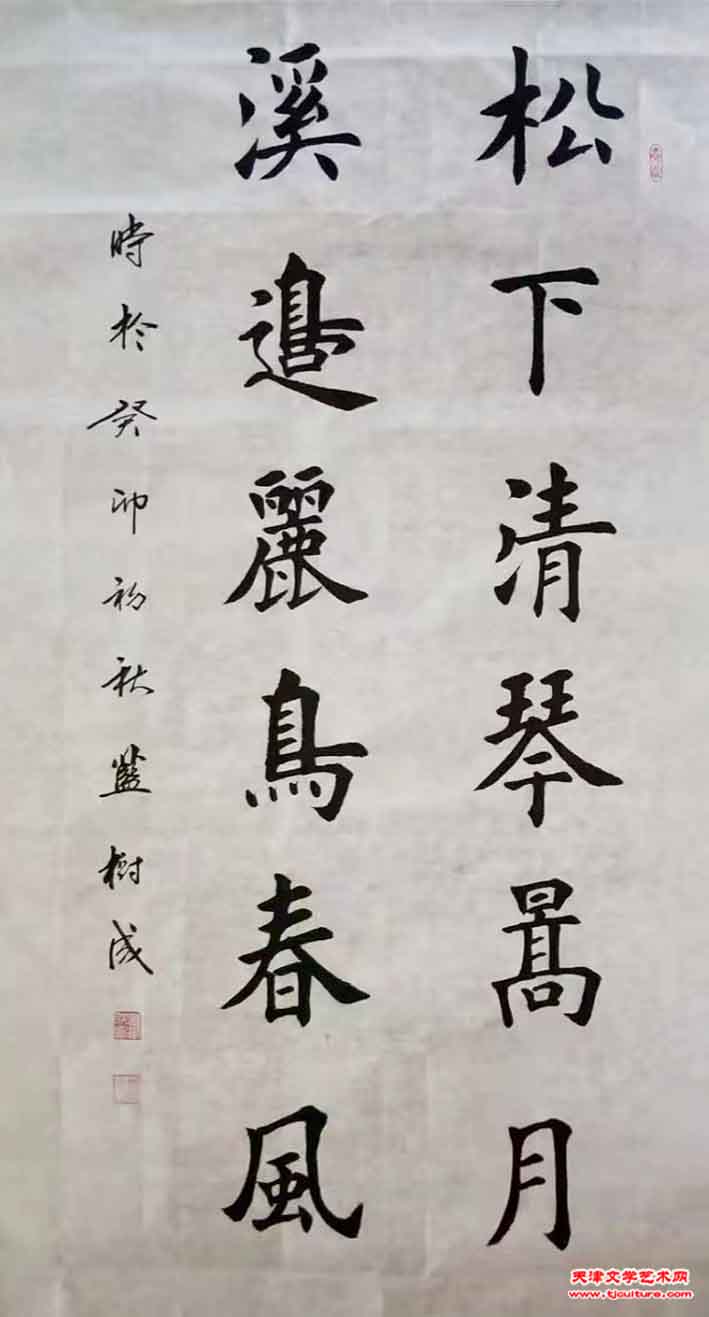 松下清琴暠月
溪邊麗鳥春風
時於癸卯初秋藍樹成
天津文学艺术网
www.tjculture.com